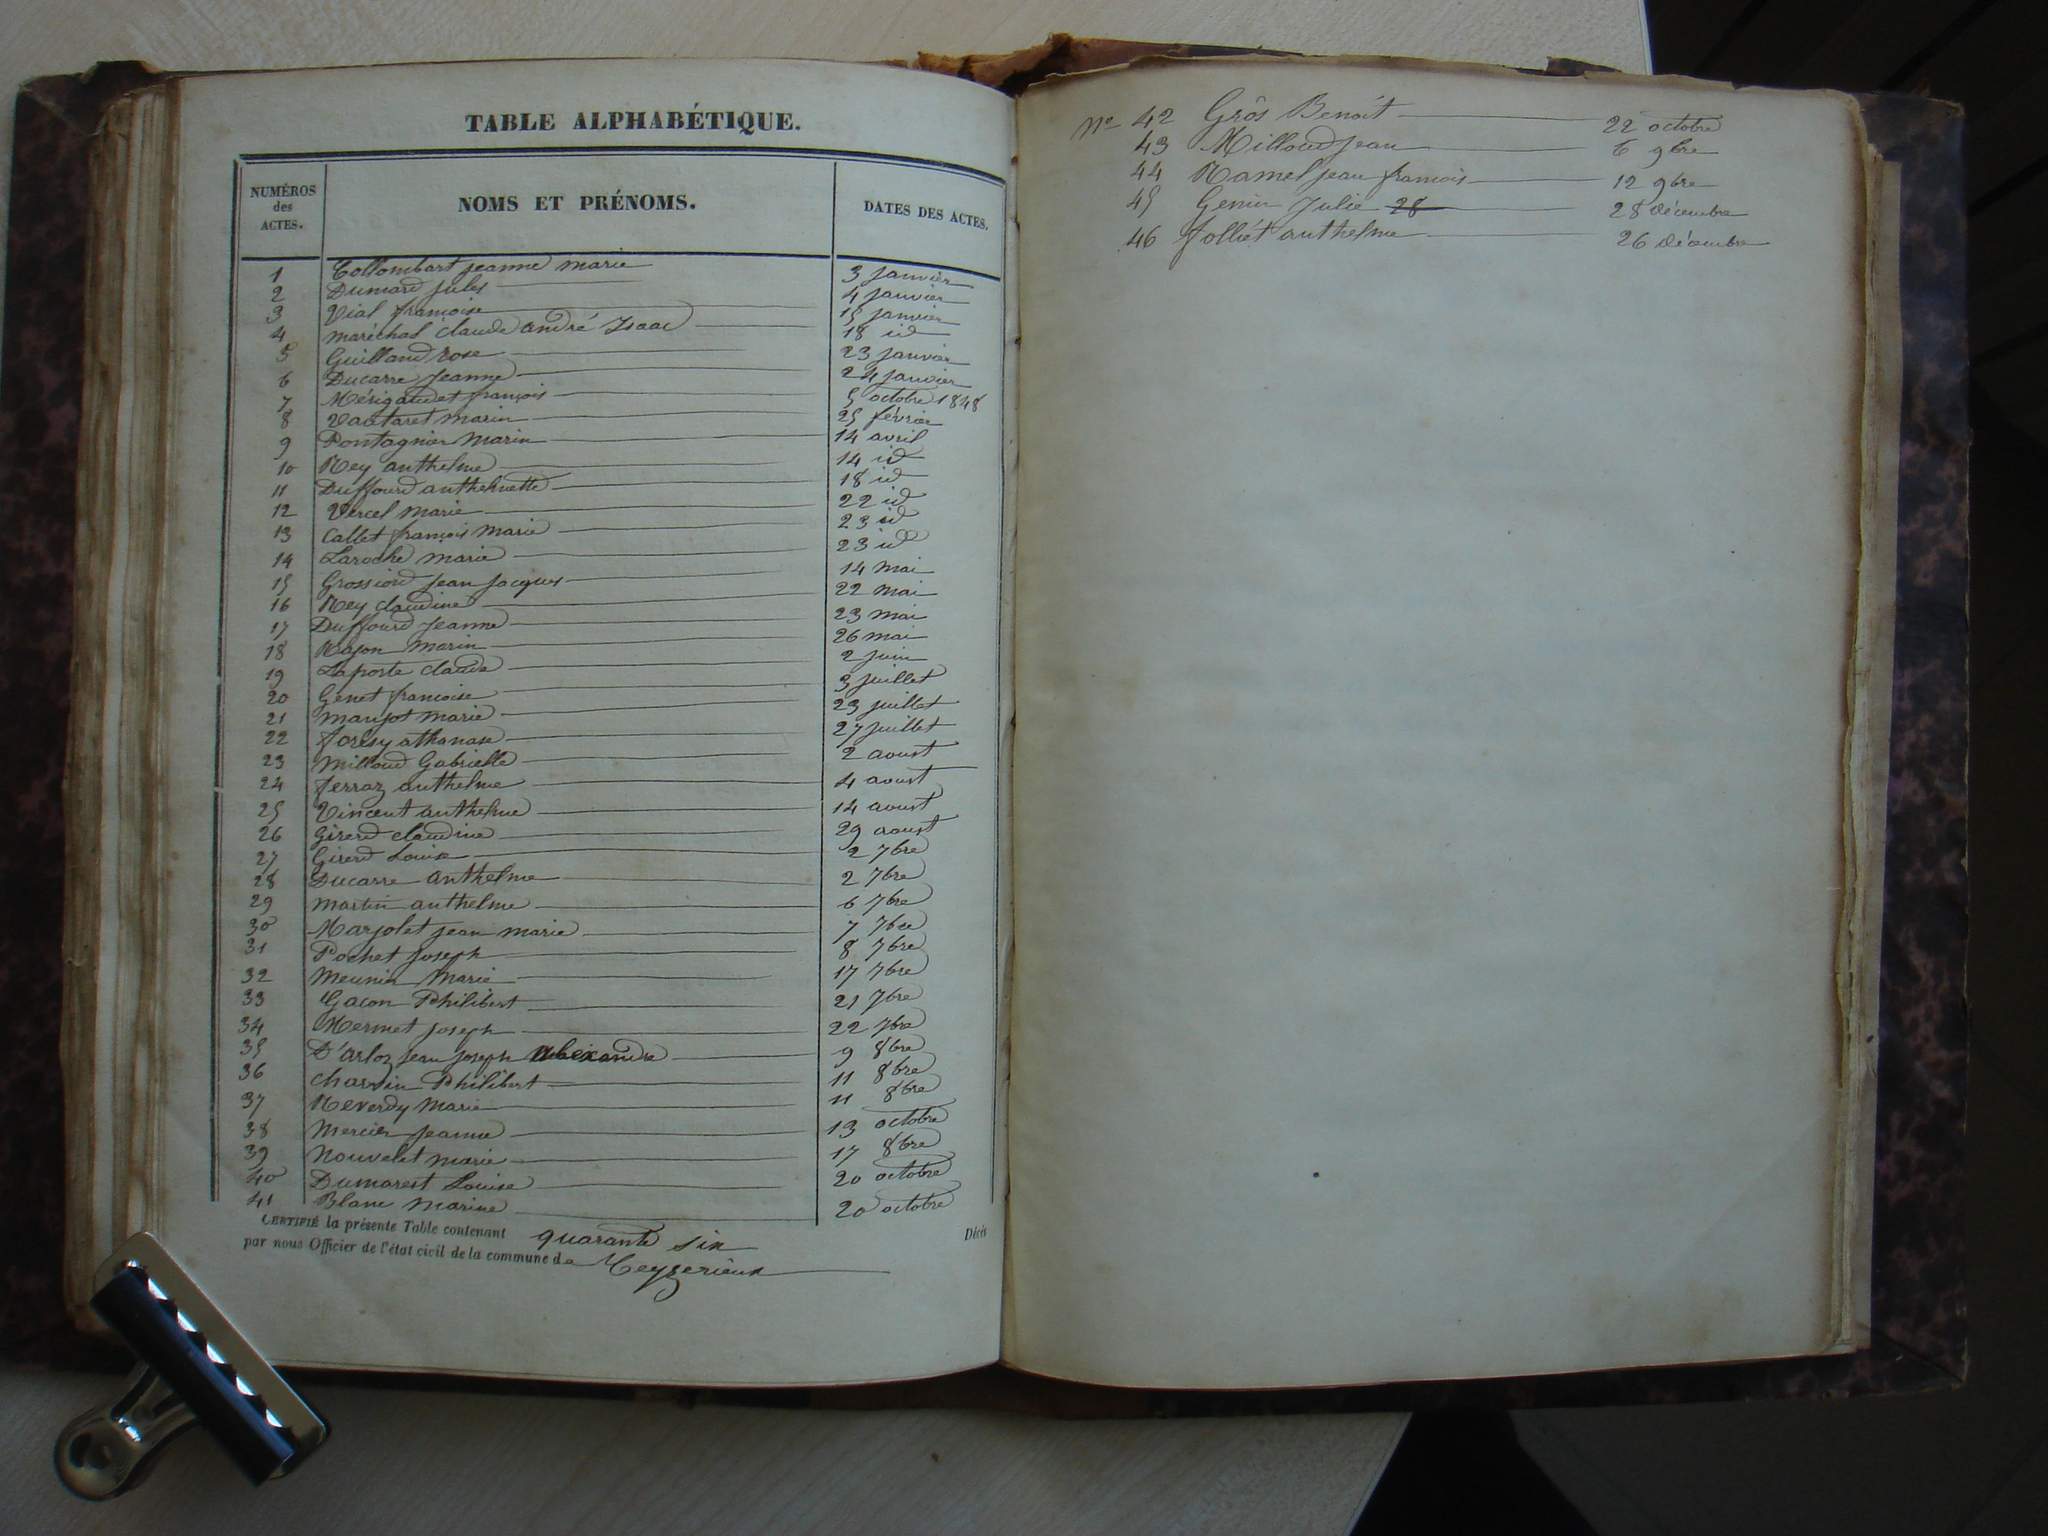 TABLE ALPHABÉTIQUE.
NUMÉROS des ACTES. NOMS ET PRÉNOMS. DATES DES ACTES.
1 Collombart jeanne marie 3 janvier
2 Dumard jules 4 janvier
3 Vial françoise 15 janvier
4 maréchal claude andré Isaac 18 id
5 Guilland rose 23 janvier
6 Ducarre Jeanne 24 janvier
7 Mérigaudet françois 5 octobre 1848
8 Vautaret marin 25 février
9 Pontagnier Marin 14 avril
10 Rey anthelme 14 id
11 Duffourd anthelmette 18 id
12 Vercel Marie 22 id
13 Callet françois Marie 23 id
14 Laroche Marie 23 id
15 Grossiord jean jacques 14 mai
16 Rey claudine 22 mai
17 Duffourd Jeanne 23 mai
18 Rajon Marin 26 mai
19 Laporte claude 2 juin
20 Genet françoise 3 juillet
21 manjot marie 23 juillet
22 foresy athanase 27 juillet
23 milloud Gabrielle 2 aoust
24 ferraz anthelme 4 aoust
25 Vincent anthelme 14 aoust
26 girerd claudine 29 aoust
27 Girerd Louise 2 7bre
28 Ducarre anthelme 2 7bre
29 martin anthelme 6 7bre
30 Marjolet jean marie 7 7bre
31 Pochet Joseph 8 7bre
32 Meunier Marie 17 7bre
33 Gacon Philibert 21 7bre
34 Mermet Joseph 22 7bre
35 D'arloz jean joseph alexandre 9 8bre
36 Charvin Philibert 11 8bre
37 Reverdy Marie 11 8bre
38 Mercier Jeanne 13 octobre
39 Nouvelet marie 17 8bre
40 Dumarest Louise 20 octobre
41 Blanc Marine 20 octobre
CERTIFIÉ la présente Table contenant quarante six Décès
par nous Officier de l'état civil de la commune de Ceyzerieux
No 42 Grôs Benoît 22 octobre
43 Milloud Jean 6 9bre
44 Ramel jean francois 12 9bre
45 Genin Julie 28 28 décembre
46 folliet anthelme 26 décembre